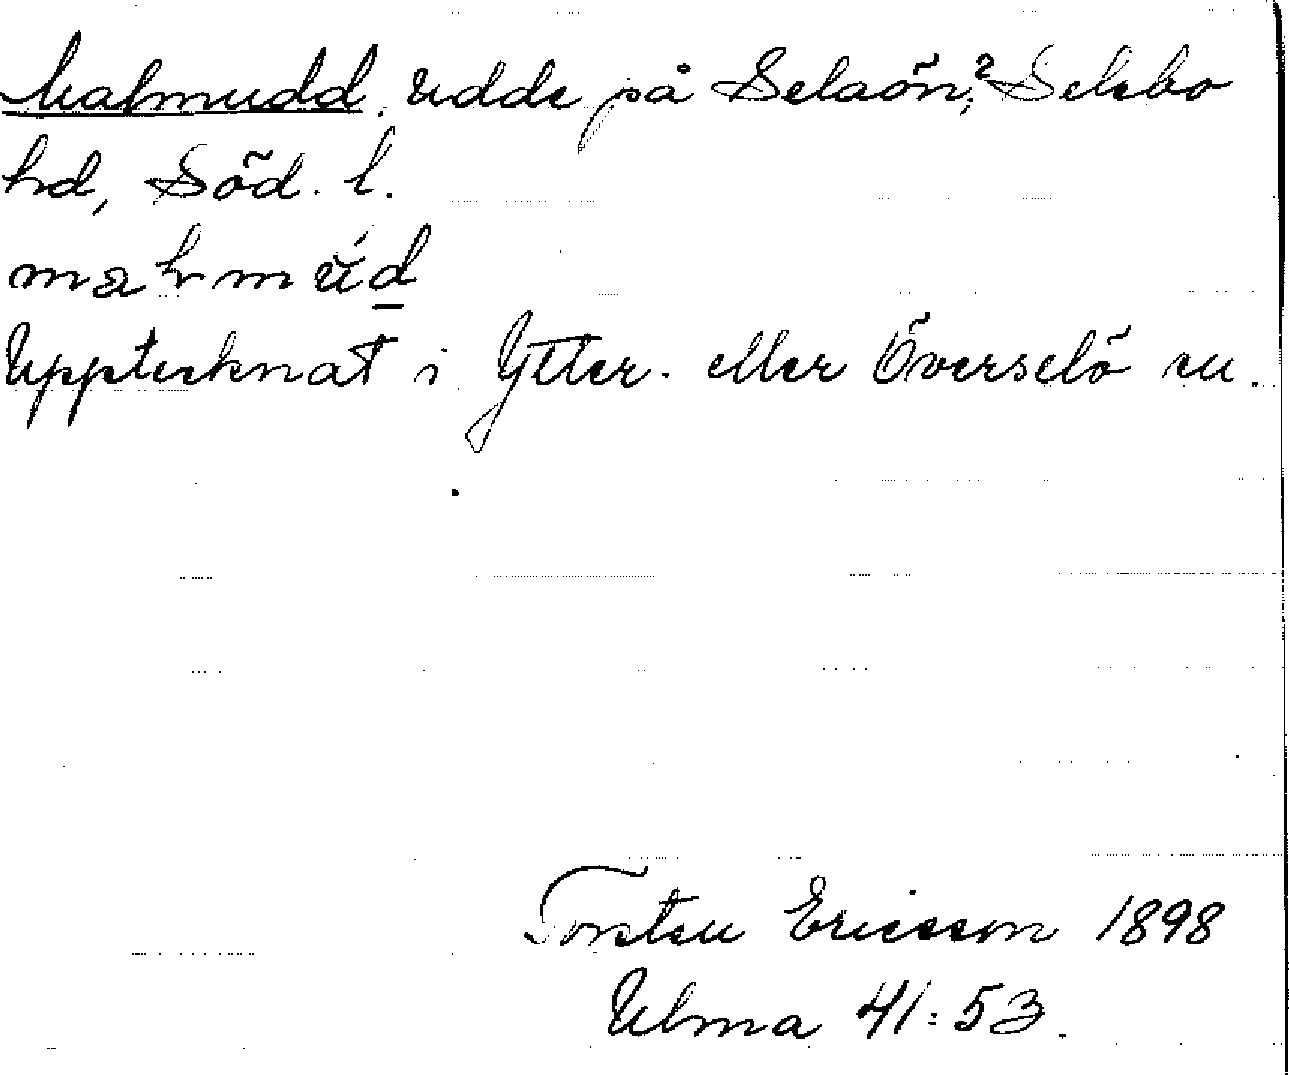 Malmudd. Udde på Selaön,? Selebo
hd, Söd. l.
malmúd
Upptecknat i Ytter- eller Överselö sn.
Torsten Ericsson 1898
Ulma 41:53.